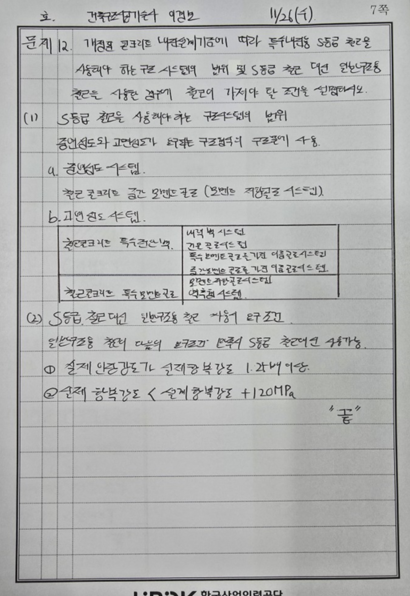 건축구조기술사 11/26(수) 7쪽
문제 12. 개정된 콘크리트 내진설계기준에 따라 특수내진용 S등급 철근을
사용해야 하는 구조 시스템의 범위 및 S등급 철근 대신 일반구조용
철근을 사용할 경우에 철근이 가져야 할 조건을 설명하시오.
(1) S등급 철근을 사용해야 하는 구조시스템의 범위
중연성도와 고연성도가 요구되는 구조물의 사용.
a. 중연성도 시스템.
철근콘크리트 중간 모멘트골조 (모멘트 저항골조 시스템)
b. 고연성도 시스템.
철근콘크리트 특수전단벽.
내력벽 시스템
건물골조시스템
특수모멘트골조를 가진 이중골조시스템
중간모멘트골조를 가진 이중골조시스템.
철근콘크리트 특수모멘트골조
모멘트저항골조시스템
시스템.
(2) S등급 철근 대신 일반구조용 철근 사용시 요구조건.
일반구조용 철근이 다음의 요구조건 만족시 S등급 철근대신 사용가능.
① 실제 인장강도가 실제항복강도 1.25배 이상.
② 실제 항복강도 < 설계항복강도 +120MPa
"끝"
한국산업인력공단